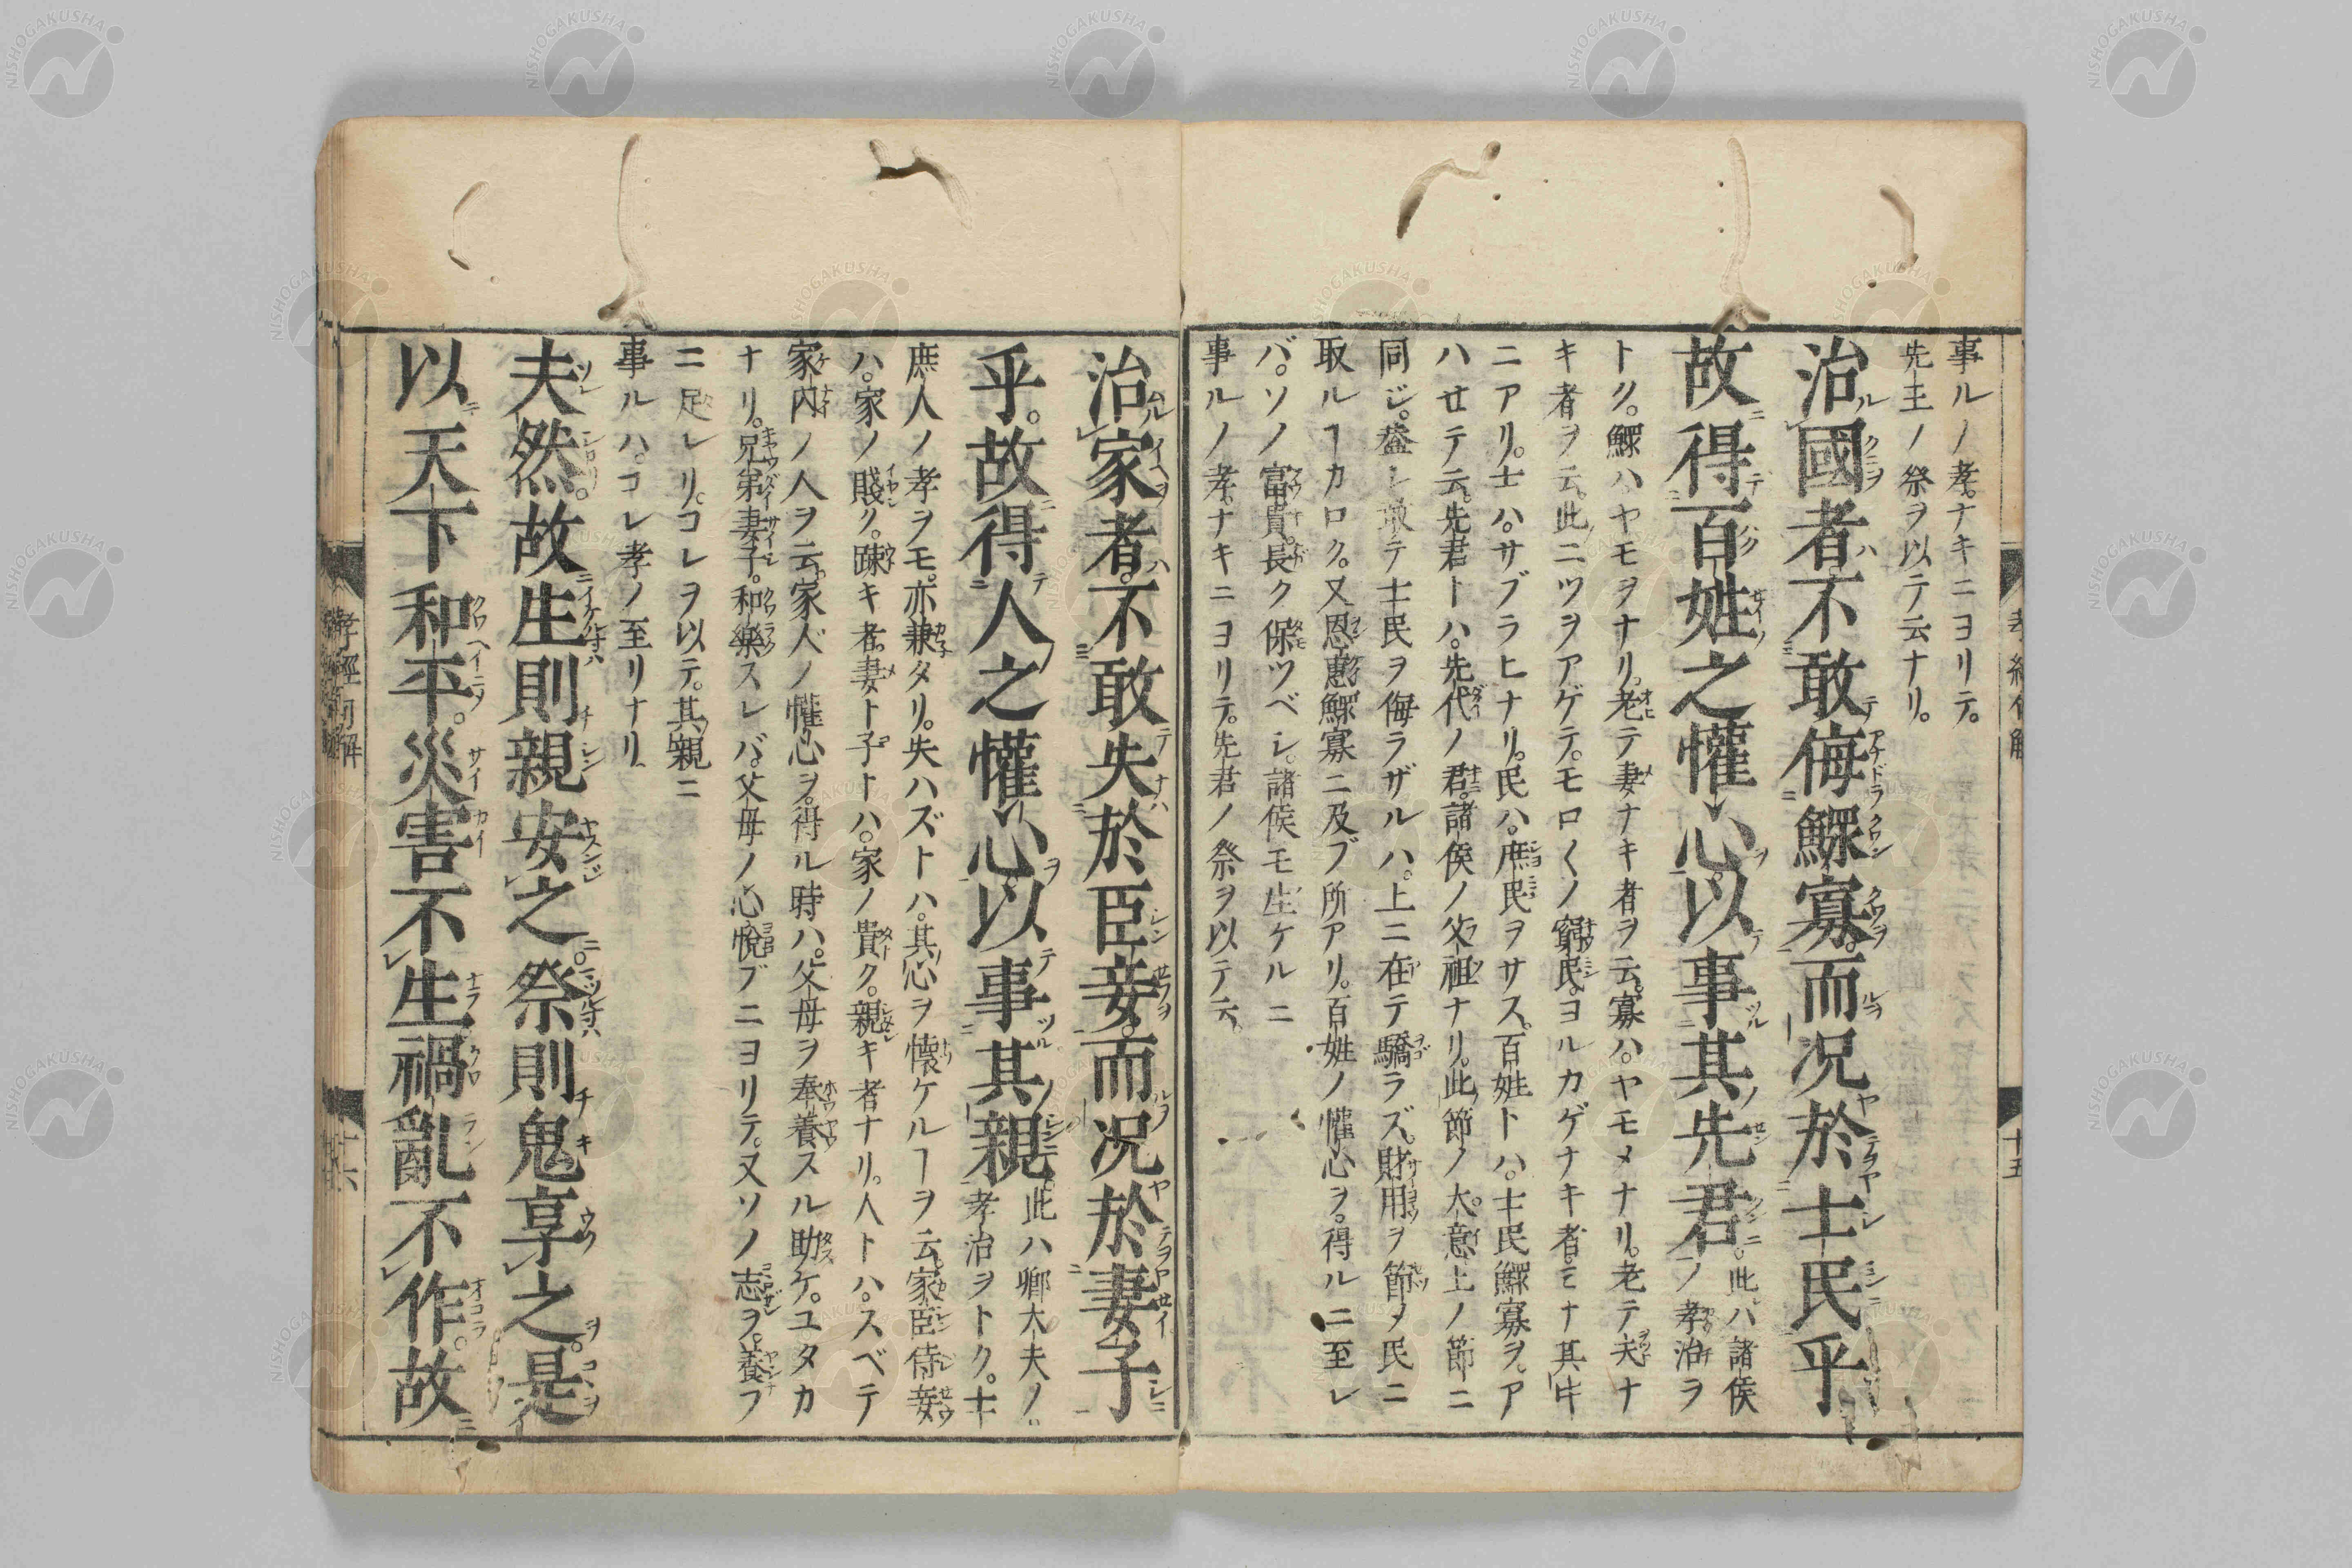 事ルノ孝。ナキニヨリテ。
先王ノ祭ヲ以テ云ナリ。
治國者不敢侮鰥寡。而况於士民乎
故得百姓之懽心。以事其先君。
此ハ諸侯
ノ孝治ヲ
トク。鰥ハヤモヲナリ。老テ妻ナキ者ヲ云。寡ハ。ヤモメナリ。老テ夫ナ
キ者ヲ云。此ニツヲアゲテ。モロ〱ノ窮民。ヨルカゲナキ者。ミナ其中
ニアリ。士ハ。サブラヒナリ。民ハ。庶民ヲサス。百姓トハ。士民鰥寡ヲ。ア
ハセテ云。先君トハ。先代ノ君。諸侯ノ父祖ナリ。此節ノ大意。上ノ節ニ
同ジ。蓋シ敢テ士民ヲ侮ラザルハ。上ニ在テ驕ラズ。財用ヲ節メ民ニ
取ルヿカロク。又恩惠鰥寡ニ及ブ所アリ。百姓ノ懽心ヲ。得ルニ至レ
バ。ソノ富貴。長ク保ツベシ。諸侯モ生ケルニ
事ルノ孝。ナキニヨリテ。先君ノ祭ヲ以テ云。
孝經
十五
治家者。不敢失於臣妾。而况於妻子
乎。故得人之懽心。以事其親。
此ハ卿大夫ノ。
孝治ヲトク。士
庶人ノ孝ヲモ。亦兼タリ。失ハズトハ。其心ヲ懷ケルヿヲ云。家臣侍妾
ハ。家ノ賤ク。踈キ者。妻ト子トハ。家ノ貴ク。親キ者ナリ。人トハ。スベテ
家内ノ人ヲ云。家人ノ懽心ヲ。得ル時ハ。父母ヲ奉養スル助ケ。ユタカ
ナリ。兄弟妻子。和樂スレバ。父母ノ心悅ブニヨリテ。又ソノ志ヲ。養フ
ニ足レリ。コレヲ以テ。其親ニ
事ルハ。コレ孝ノ至リナリ
夫然。故生則親安之。祭則鬼享之。是
以天下和平。災害不生禍亂不作。故
孝經
十六